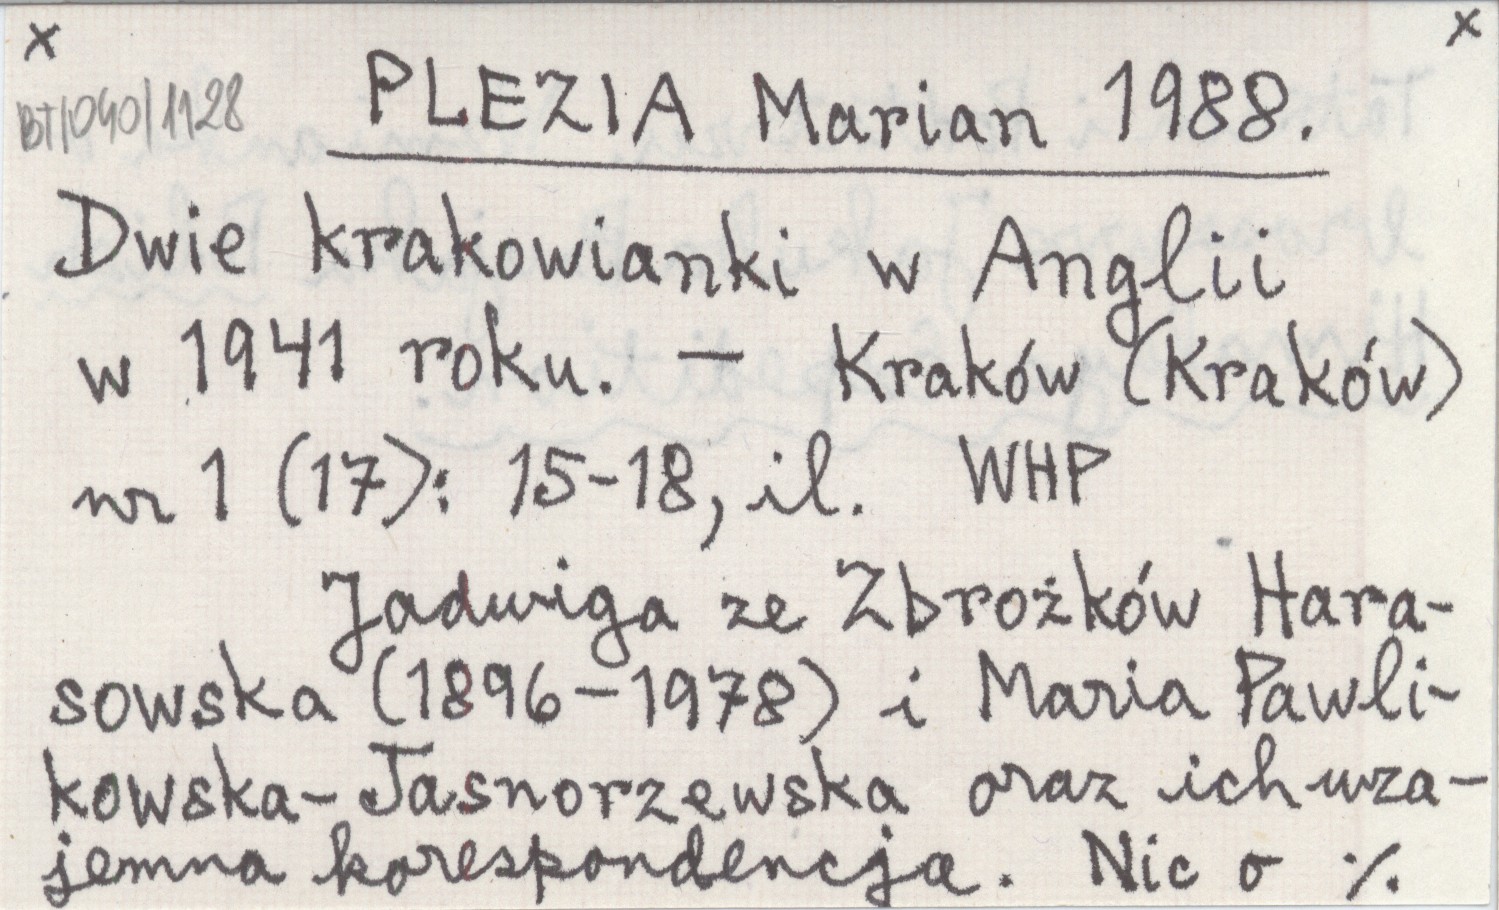 x x
BT/040/1128 PLEZIA Marian 1988.
Dwie krakowianki w Anglii
w 1941 roku. — Kraków (Kraków)
nr 1 (17): 15-18, il. WHP
Jadwiga ze Zbrożków Hara-
sowska (1896-1978) i Maria Pawli-
kowska-Jasnorzewska oraz ich wza-
jemna korespondencja. Nic o ./.